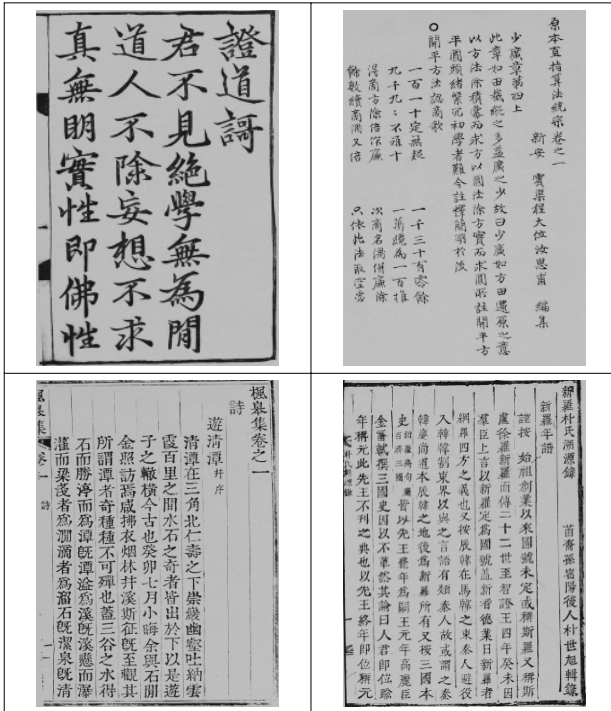 證道謌
君不見絕學無為閒
道人不除妄想不求
真無明實性即佛性
原本直指算法統宗卷之一
新安 賓渠程大位汝思甫 編集
少廣章第四上
此章如田截縱之多益廣之少故曰少廣如方田還原之意
以方法除積冪而求方以圓法除方實而求圓所註開平方
平圓頭緒繁冗初學者難今註釋簡明於後
○開平方法認商歌
一百一十定無疑 一千三十有零餘
九千九九不離十 一萬纔為一百推
得商方除倍深廉 次商名隅併廉除
餘數續商隅又倍 只依此法取空虛
楓皋集卷之一
詩
遊清潭 幷序
清潭在三角北仁壽之下崇巖幽壑吐納雲
霞百里之間水石之奇者皆出於下以是遊
子之轍橫今古也癸卯七月小晦余與石閒
金照訪焉咸拂衣烟林幷溪斯征旣至觀其
所謂潭者奇種種不可殫也蓋三谷之水得
石而勝渟而為潭旣潭溢為溪旣溪懸而瀑
灌而梁淺者為澗滴者為溜石旣潔泉旣清
楓皋集 卷一 詩
新羅朴氏淵源錄 苗裔孫密陽後人朴世旭輯錄
新羅年譜
謹按 始祖創業以來國號未定或稱斯羅又稱斯
盧徐羅新羅而傳二十二世至智證王四年癸未因
羣臣上言以新羅定為國號蓋新者德業日新羅者
網羅四方之義也又按辰韓在馬韓之東秦人避役
入韓韓割東界以與之言語有類秦人故或謂之秦
韓婁尚道本辰韓之地後為新羅所有又按三國本
史 皆以先王薨年為嗣王元年高麗臣
金富軾撰三國史因以不革然其論曰人君即位踰
年稱元此先王不刊之典也以先王終年即位稱元